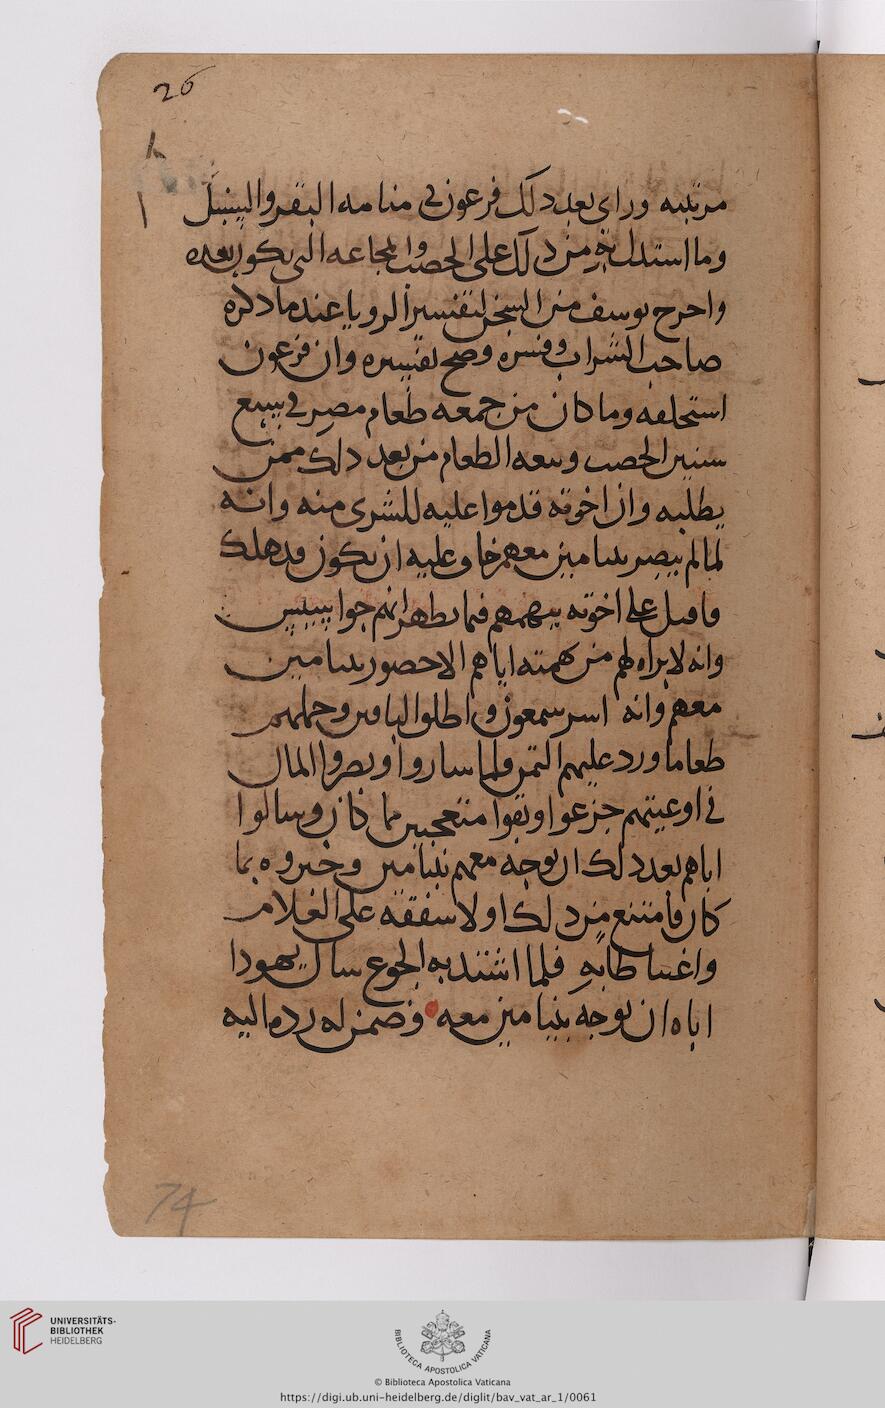 26
مرتبته وراى بعد دلك فرعون في منامه البقر والسنبل
وما استدل به من دلك على الحصب والمجاعه التى يكون بعده
واحرج يوسف من السجن لتفسير الرويا عند ما دكره
صاحب الشراب وفسره وصح تفسيره وان فرعون
استحلفه وما كان من جمعه طعام مصر في سبع
سنين الحصب وبيعه الطعام من بعد دلك ممن
يطلبه وان اخوته قدموا عليه للشرى منه وانه
لما لم يبصر بنيامين معهم خاف عليه ان يكون قد هلك
واقبل على اخوته يتهمهم فيما يظهر انهم جواسيس
وانه لا براه لهم من تهمته اياهم الا حصور بنيامين
معهم وانه اسر سمعون واطلق الباقين وحملهم
طعاما ورد عليهم الثمن ولما ساروا وبصروا المال
في اوعيتهم جزعوا وبقوا متعجبين مما كان وسالوا
اباهم بعد دلك ان يوجه معهم بنيامين وخبروه بما
كان فامتنع من دلك اولا شفقه على الغلام
واغتباطا به فلما اشتد به الجوع سال يهودا
اباه ان يوجه بنيامين معه وضمن له رده اليه
74
UNIVERSITÄTS-
BIBLIOTHEK
HEIDELBERG
BIBLIOTECA APOSTOLICA VATICANA
© Biblioteca Apostolica Vaticana
https://digi.ub.uni-heidelberg.de/diglit/bav_vat_ar_1/0061